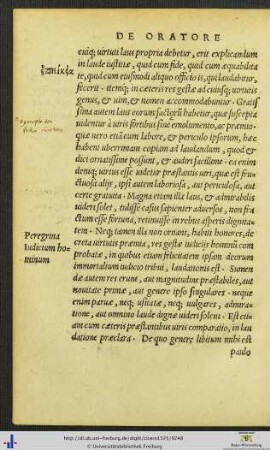 DE ORATORE
eiúsq; uirtuti laus propria debetur, erit explicandum
in laude iustitiæ, quid cum fide, quid cum æquabilita
te, quid cum eiusmodi aliquo officio is, qui laudabitur,
fecerit. itemq; in cæteris res gestæ ad cuiusq; uirtutis
genus, & uim, & nomen accommodabuntur. Gratis
sima autem laus eorum factorū habetur, quæ suscepta
uidentur à uiris fortibus sine emolumento, ac præmio:
quæ uero etiā cum labore, & periculo ipsorum, hæc
habent uberrimam copiam ad laudandum, quod & 
dici ornatissime possunt, & audiri facillime. ea enim
deniq; uirtus esse uidetur præstantis uiri, quæ est fru
ctuosa alijs, ipsi autem laboriosa, aut periculosa, aut
certe gratuita. Magna etiam illa laus, & admirabilis
uideri solet, tulisse casus sapienter aduersos, non fra
ctum esse fortuna, retinuisse in rebus asperis dignita
tem. Neq; tamen illa non ornant, habiti honores, de
Peregrina
creta uirtutis præmia, res gestæ iudicijs hominū com
Iudicium ho=
probatæ, in quibus etiam felicitatem ipsam deorum
minum
immortalium iudicio tribui, laudationis est. Sumen
dæ autem res erunt, aut magnitudine præstabiles, aut
nouitate primæ, aut genere ipso singulares. neque
enim paruæ, neq; usitatæ, neq; uulgares, admira=
tione, aut omnino laude dignæ uideri solent. Est eti=
am cum cæteris præstantibus uiris comparatio, in lau
datione præclara. De quo genere libitum mihi est
paulo
http://dl.ub.uni-freiburg.de/diglit/cicero1521/0248
© Universitätsbibliothek Freiburg